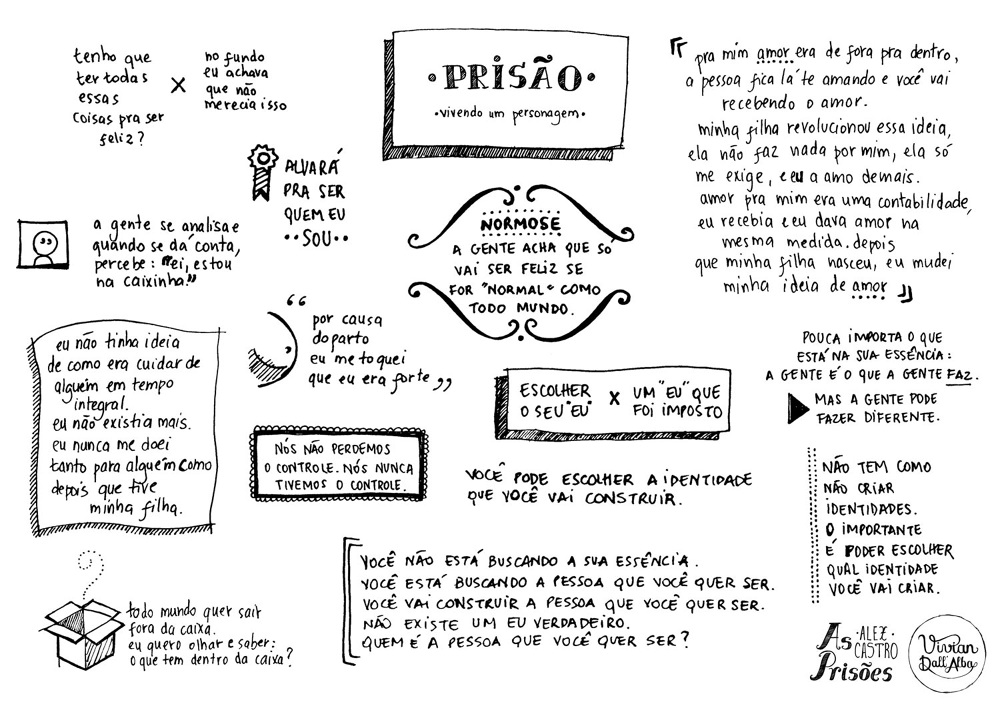 tenho que
ter todas
essas
coisas pra ser
feliz?
X
no fundo
eu achava
que não
merecia isso
• PRISÃO •
• vivendo um personagem •
ALVARÁ
PRA SER
QUEM EU
•• SOU ••
a gente se analisa e
quando se dá conta,
percebe: "ei, estou
na caixinha."
NORMOSE
A GENTE ACHA QUE SÓ
VAI SER FELIZ SE
FOR "NORMAL" COMO
TODO MUNDO.
"pra mim amor era de fora pra dentro,
a pessoa fica lá te amando e você vai
recebendo o amor.
minha filha revolucionou essa ideia,
ela não faz nada por mim, ela só
me exige, e eu a amo demais.
amor pra mim era uma contabilidade,
eu recebia e eu dava amor na
mesma medida. depois
que minha filha nasceu, eu mudei
minha ideia de amor"
eu não tinha ideia
de como era cuidar de
alguém em tempo
integral.
eu não existia mais.
eu nunca me doei
tanto para alguém como
depois que tive
minha filha.
"por causa
do parto
eu me toquei
que eu era forte"
NÓS NÃO PERDEMOS
O CONTROLE. NÓS NUNCA
TIVEMOS O CONTROLE.
ESCOLHER
O SEU "EU"
X
UM "EU" QUE
FOI IMPOSTO
VOCÊ PODE ESCOLHER A IDENTIDADE
QUE VOCÊ VAI CONSTRUIR.
POUCA IMPORTA O QUE
ESTÁ NA SUA ESSÊNCIA:
A GENTE É O QUE A GENTE FAZ.
MAS A GENTE PODE
FAZER DIFERENTE.
NÃO TEM COMO
NÃO CRIAR
IDENTIDADES.
O IMPORTANTE
É PODER ESCOLHER
QUAL IDENTIDADE
VOCÊ VAI CRIAR.
todo mundo quer sair
fora da caixa.
eu quero olhar e saber:
o que tem dentro da caixa?
VOCÊ NÃO ESTÁ BUSCANDO A SUA ESSÊNCIA.
VOCÊ ESTÁ BUSCANDO A PESSOA QUE VOCÊ QUER SER.
VOCÊ VAI CONSTRUIR A PESSOA QUE VOCÊ QUER SER.
NÃO EXISTE UM EU VERDADEIRO.
QUEM É A PESSOA QUE VOCÊ QUER SER?
As
Prisões
• ALEX •
CASTRO
Vivian
Dall'Alba